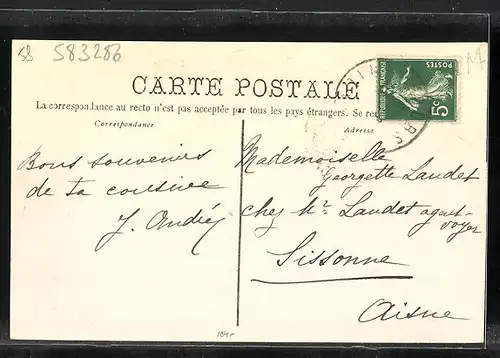 58 583286
CARTE POSTALE
La correspondance au recto n'est pas acceptée par tous les pays étrangers. Se re
Correspondance
Adresse
POSTES
REPUBLIQUE FRANÇAISE
5c
Bons souvenirs
de ta cousine
J. André
Mademoiselle
Georgette Laudet
chez Mr. Laudet agent-
voyer
Sissonne
Aisne